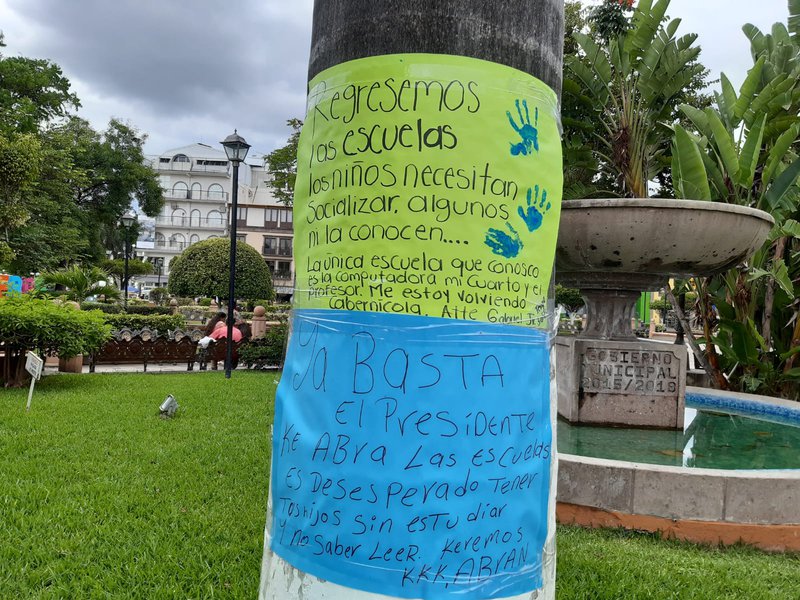 Regresemos
las escuelas
los niños necesitan
socializar, algunos
ni la conocen....
La única escuela que conosco
es la computadora mi cuarto y el
profesor. Me estoy volviendo
cabernicola. Atte Gabriel
Ya BASTA
El PresiDENTE
KE ABra Las escuelas
es DeseSPerado Tener
los hijos Sin estudiar
y no Saber LeeR. Keremos
KKK, ABRAN
GOBIERNO
MUNICIPAL
2015/2018